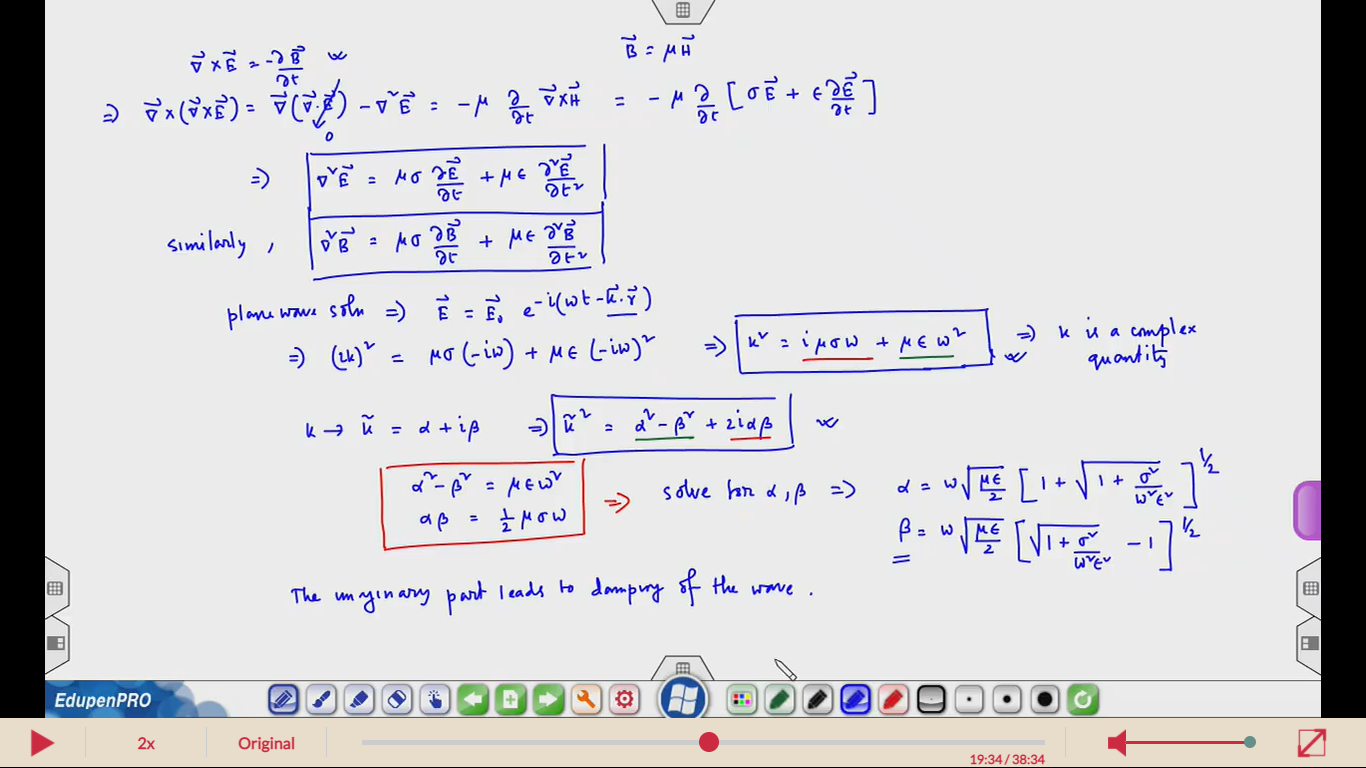 ∇⃗ × E⃗ = -∂B⃗/∂t
B⃗ = μH⃗
⇒ ∇⃗×(∇⃗×E⃗) = ∇⃗(∇⃗·E⃗) - ∇²E⃗ = -μ ∂/∂t ∇⃗×H⃗ = -μ ∂/∂t [σE⃗ + ϵ ∂E⃗/∂t]
0
⇒ ∇²E⃗ = μσ ∂E⃗/∂t + μϵ ∂²E⃗/∂t²
similarly, ∇²B⃗ = μσ ∂B⃗/∂t + μϵ ∂²B⃗/∂t²
plane wave soln ⇒ E⃗ = E⃗₀ e^{-i(ωt - k⃗·r⃗)}
⇒ (ik)² = μσ(-iω) + μϵ(-iω)² ⇒ k² = iμσω + μϵω² ⇒ k is a complex
quantity
k → k̃ = α + iβ ⇒ k̃² = α² - β² + 2iαβ
α² - β² = μϵω²
αβ = 1/2 μσω
⇒ solve for α, β ⇒ α = ω√(μϵ/2) [1 + √(1 + σ²/ω²ϵ²)]^{1/2}
β = ω√(μϵ/2) [√(1 + σ²/ω²ϵ²) - 1]^{1/2}
The imaginary part leads to damping of the wave.
EdupenPRO
2x Original 19:34 / 38:34